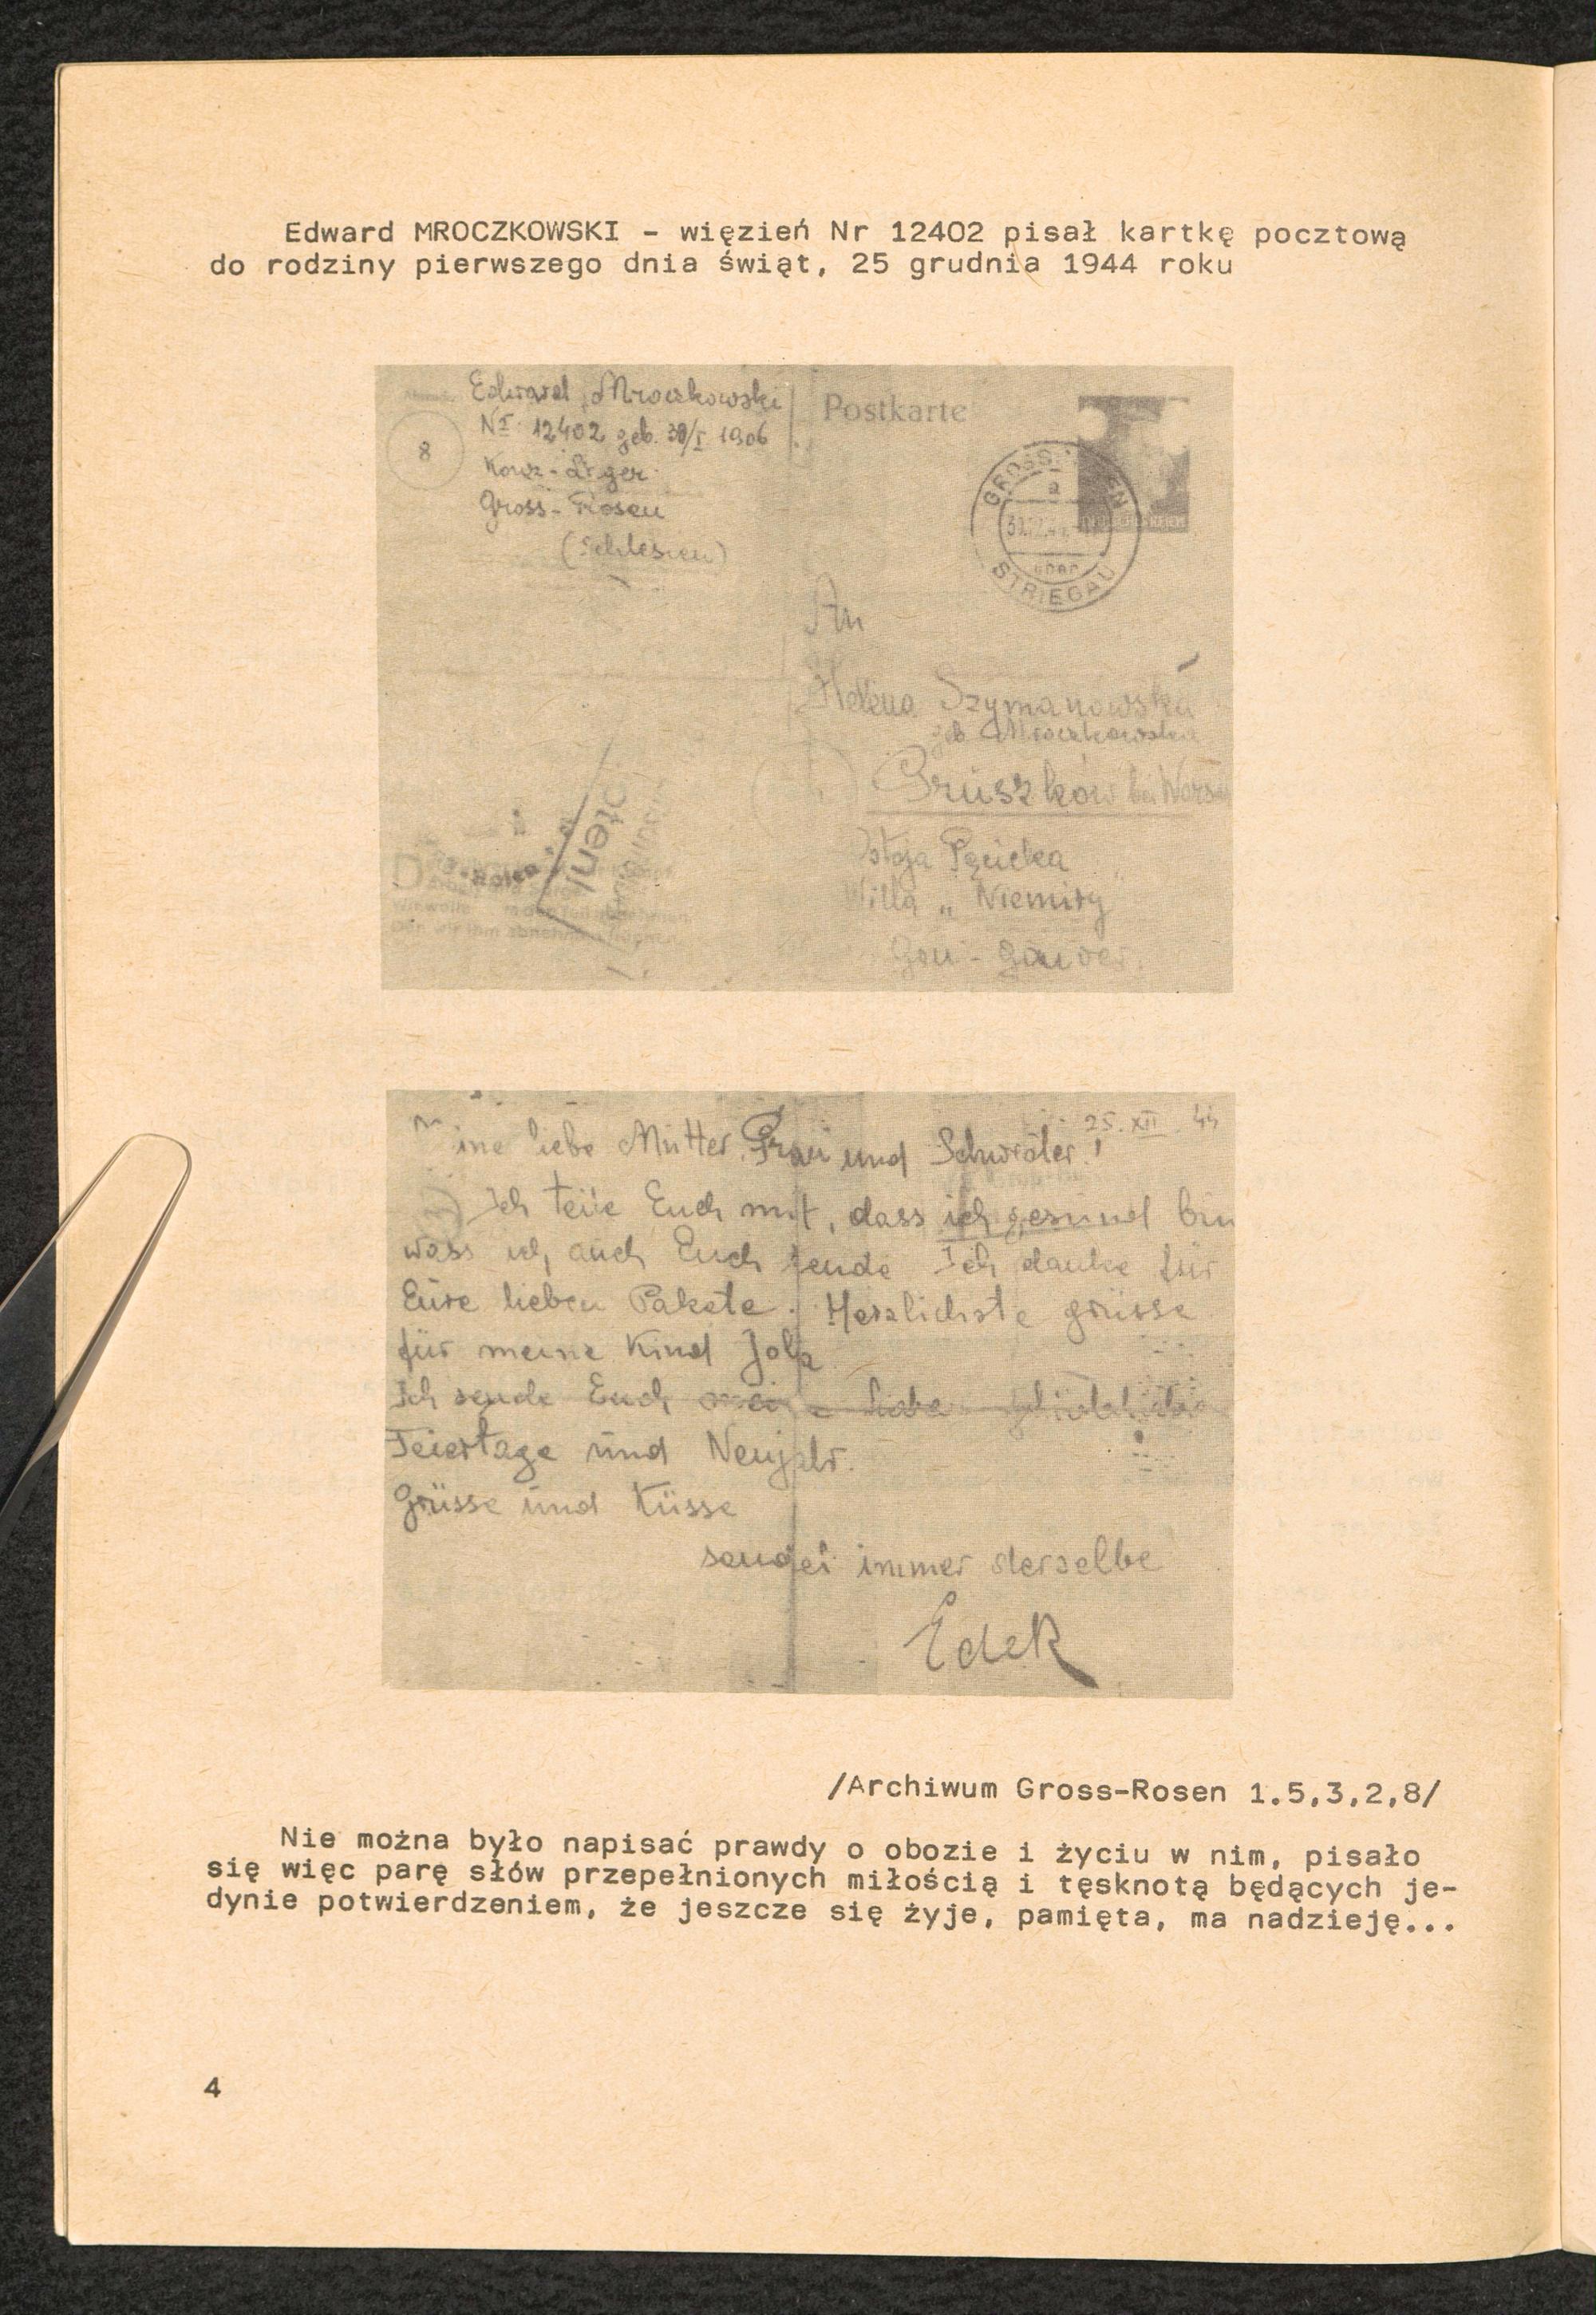 Edward MROCZKOWSKI – więzień Nr 12402 pisał kartkę pocztową
do rodziny pierwszego dnia świąt, 25 grudnia 1944 roku
Edward Mroczkowski
Nr 12402 geb. 30/I 1906
8
Konz-Lager
Gross-Rosen
(Schlesien)
Postkarte
GROSS
a
STRIEGAU
An
Helena Szymanowska
geb Mroczkowska
Pruszków bei Warsch
Pęcicka
Willa „Niemiry
Gou-
25. XII 44
ine liebe Mutter, Frau und Schwester!
Ich teile Euch mit, dass ich gesund bin
wass ich auch Euch sende Ich danke für
Eure lieben Pakete. Herzlichste grüsse
für meine Kind Jola
Ich sende Euch
Feiertage und Neujahr.
Grüsse und Küsse
sendet immer derselbe
Edek
/Archiwum Gross-Rosen 1.5,3,2,8/
Nie można było napisać prawdy o obozie i życiu w nim, pisało
się więc parę słów przepełnionych miłością i tęsknotą będących je-
dynie potwierdzeniem, że jeszcze się żyje, pamięta, ma nadzieję...
4